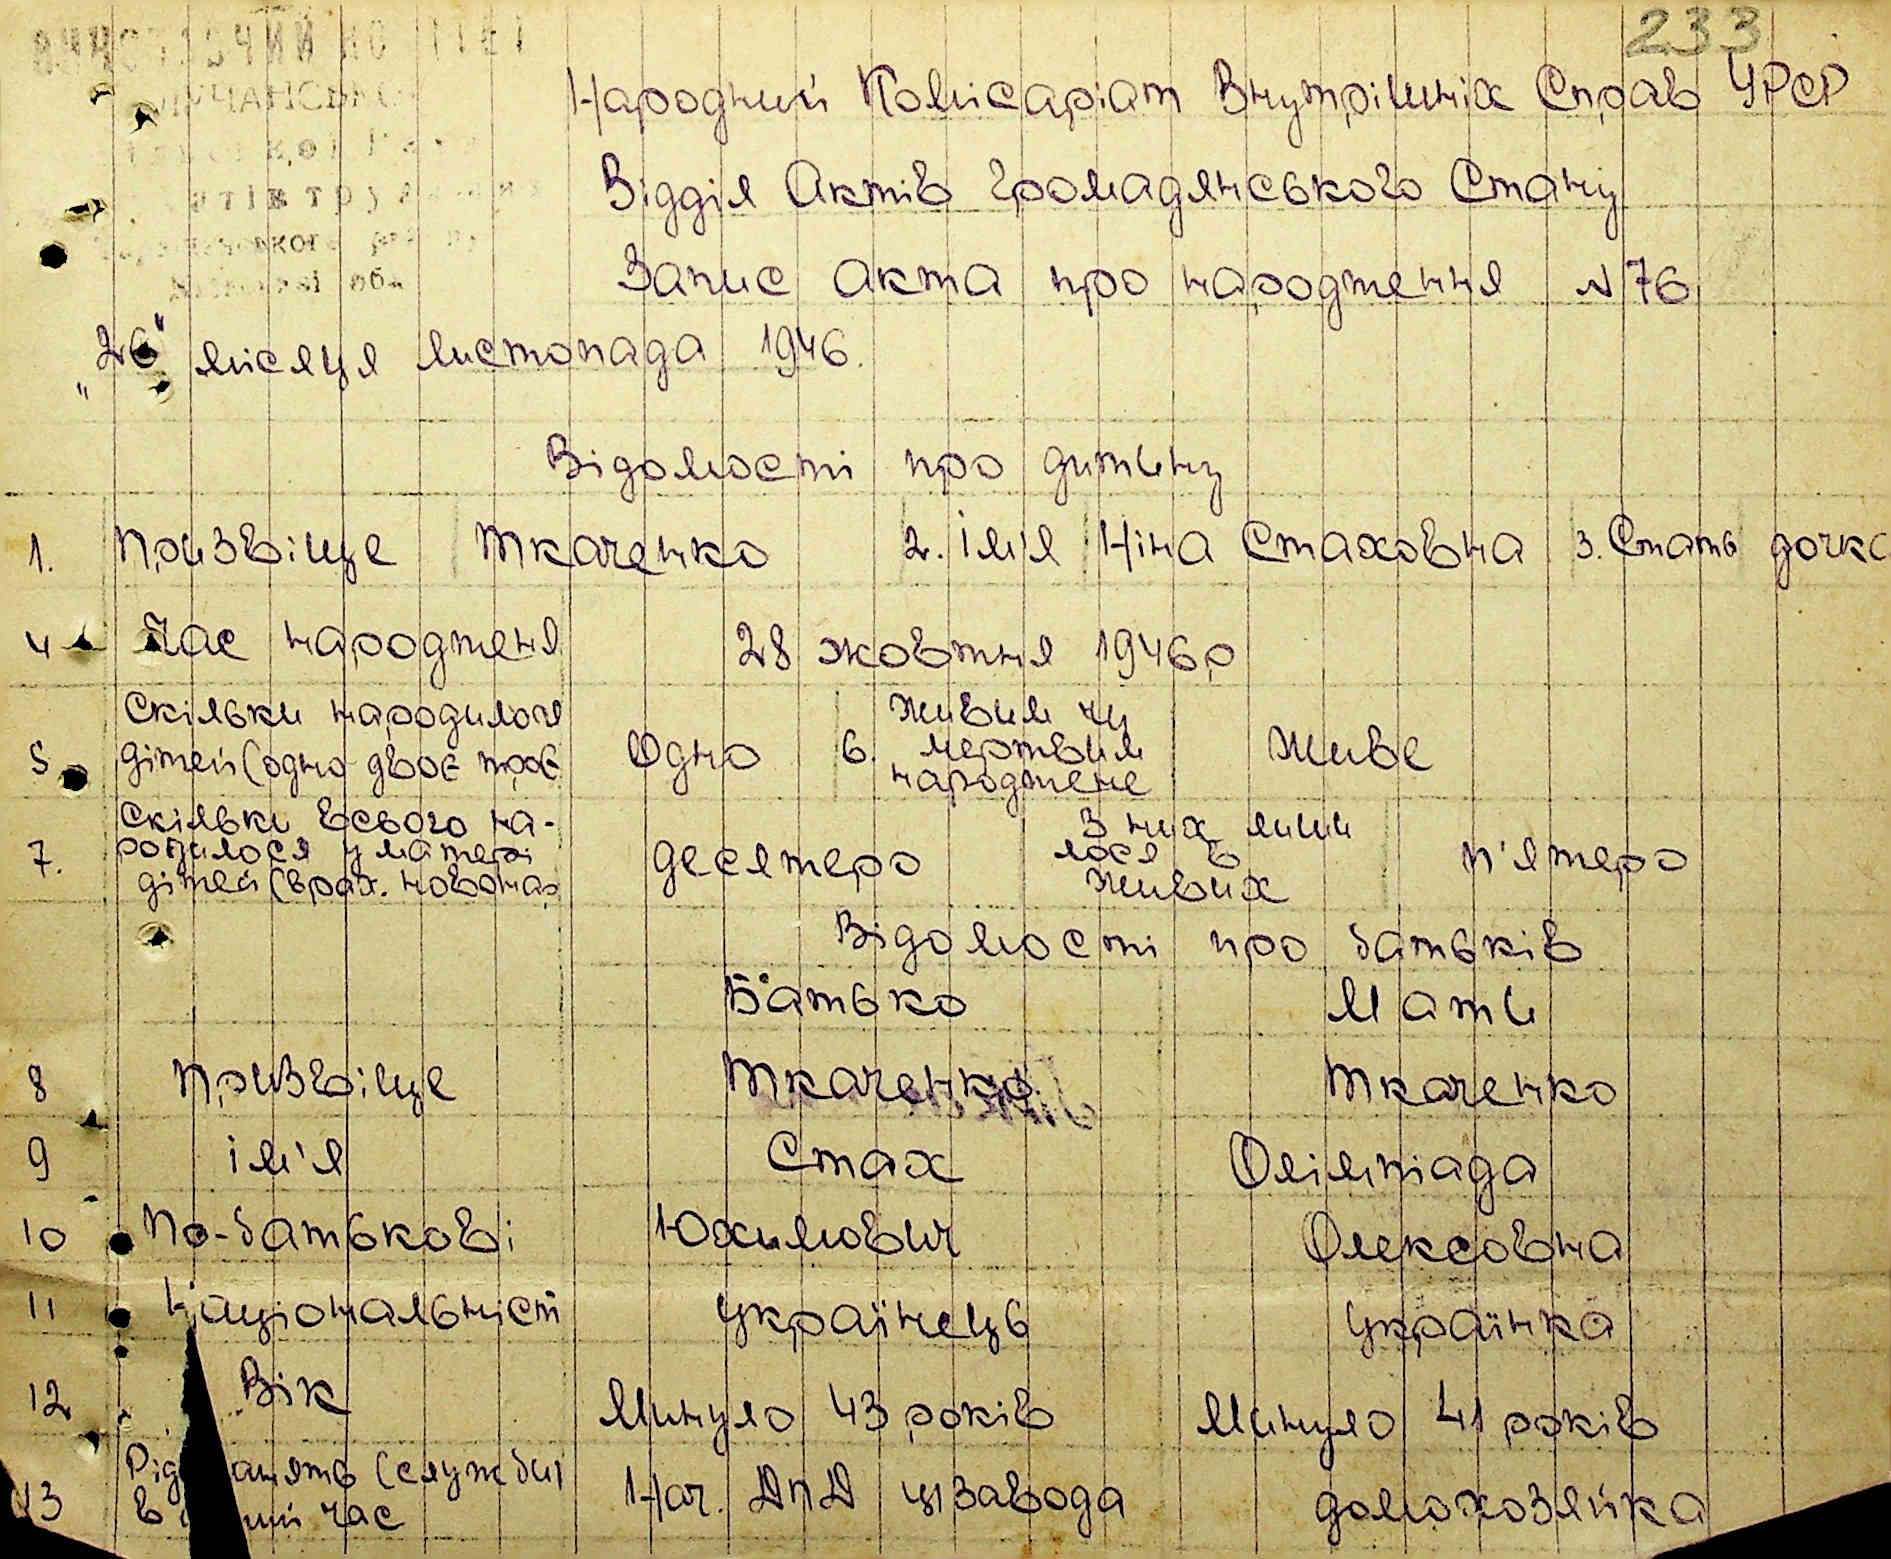 233
Народний Комісаріат Внутрішніх Справ УРСР
Відділ Актів Громадянського Стану
Запис акта про народження N 76
"26" місяця листопада 1946.
Відомості про дитину
1. Призвіще Ткаченко 2. Ім'я Ніна Стаховна 3. Стать дочка
4 Час народженя 28 жовтня 1946 р
5. Скільки народилося дітей (одно двоє троє Одно 6. Живим чи мертвим народжене Живе
7. Скільки всього народилося у матері дітей (врах. новонар десятеро З них лишилося в живих п'ятеро
Відомості про батьків
Батько Мати
8 Призвіще Ткаченко Ткаченко
9 ім'я Стах Олімпіада
10 По-батькові Юхимович Олексовна
11 Національність Українець Українка
12 Вік Минуло 43 років Минуло 41 років
13 Рід занять (служби) в час Нач. ДПД ц/завода домохозяйка